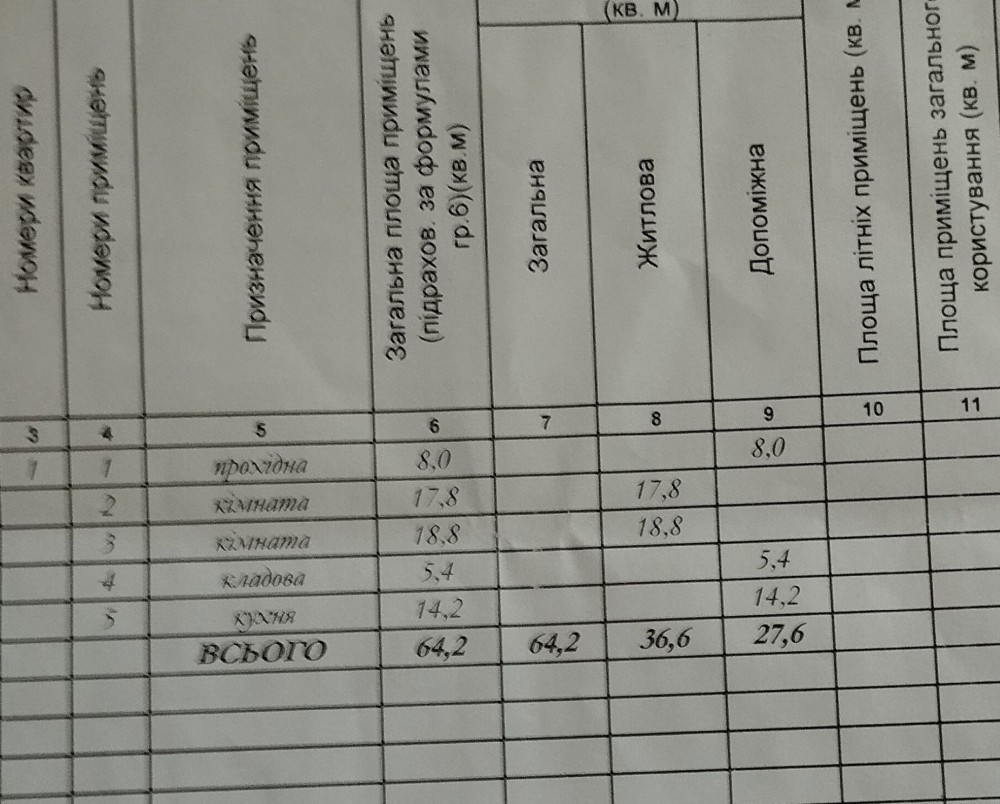 (кв. м)
Номери квартир
Номери приміщень
Призначення приміщень
Загальна площа приміщень
(підрахов. за формулами
гр.6)(кв.м)
Загальна
Житлова
Допоміжна
Площа літніх приміщень (кв.
Площа приміщень
користування (кв. м)
3 4 5 6 7 8 9 10 11
1 1 прохідна 8,0 8,0
2 кімната 17,8 17,8
3 кімната 18,8 18,8
4 кладова 5,4 5,4
5 кухня 14,2 14,2
ВСЬОГО 64,2 64,2 36,6 27,6